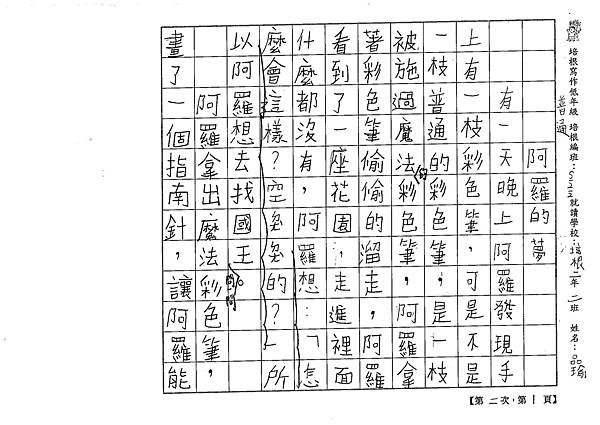 培根寫作低年級 培根編班： 就讀學校：培根 二年 二班 姓名：品瑜
普通
阿羅的夢
有一天晚上阿羅發現手
上有一枝彩色筆，可是不是
一枝普通的彩色筆，是一枝
被施過魔法的彩色筆，阿羅拿
著彩色筆偷偷的溜走，阿羅
看到了一座花園，走進裡面
什麼都沒有，阿羅想：「怎
麼會這樣？空空的？」所
以阿羅想去找國王。
阿羅拿出魔法彩色筆，
畫了一個指南針，讓阿羅能
【第 二 次，第 1 頁】